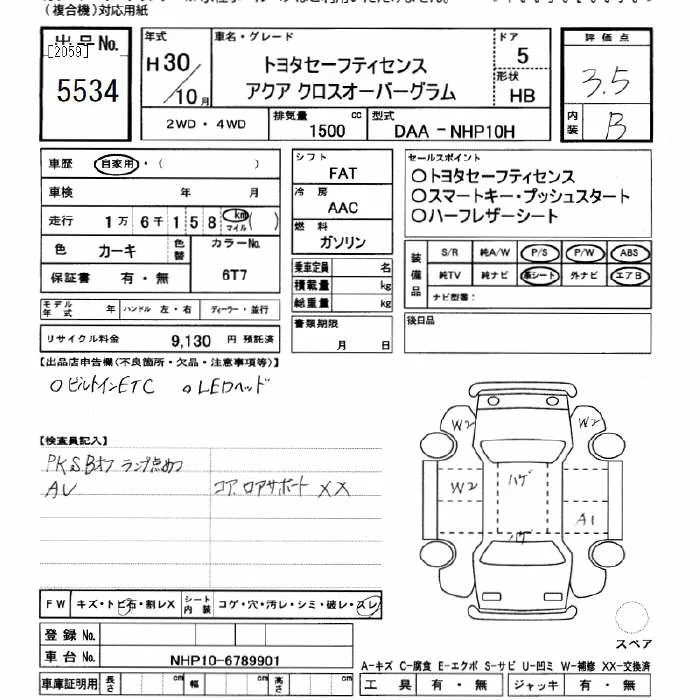 (複合機)対応用紙
出品No.
[2059]
5534
年式
H30/10月
車名・グレード
トヨタセーフティセンス
アクア クロスオーバーグラム
ドア
5
形状
HB
評価点
3.5
内装
B
2WD・4WD
排気量
1500 cc
型式
DAA-NHP10H
車歴 自家用・( )
車検 年 月
走行 1万6千158 km マイル ( )
色 カーキ 色替 カラーNo. 6T7
保証書 有・無
モデル年式 年 ハンドル 左・右 ディーラー・並行
リサイクル料金 9,130 円 預託済
シフト
FAT
冷房
AAC
燃料
ガソリン
乗車定員 名
積載量 kg
総重量 kg
書類期限
月 日
セールスポイント
○トヨタセーフティセンス
○スマートキー・プッシュスタート
○ハーフレザーシート
装備品
S/R 純A/W P/S P/W ABS
純TV 純ナビ 革シート 外ナビ エアB
ナビ型番:
後日品
【出品店申告欄(不良箇所・欠品・注意事項等)】
○ビルトインETC ○LEDヘッド
【検査員記入】
PKSBオフ ランプ点めつ
AV
コア、ロアサポート XX
W2 W2
W2 ハゲ
A1
ハゲ
FW キズ・トビ石・割レX シート内装 コゲ・穴・汚レ・シミ・破レ・スレ
登録No.
車台No. NHP10-6789901
車庫証明用 長さ cm 幅 cm 高さ cm
スペア
A-キズ C-腐食 E-エクボ S-サビ U-凹ミ W-補修 XX-交換済
工具 有・無 ジャッキ 有・無